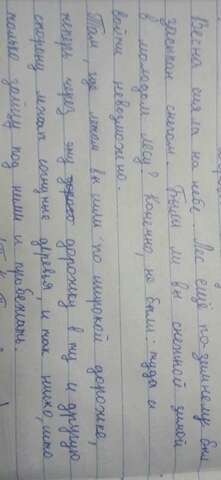 Весна сняла на небе. Лес ещё по-зимнему был
засыпан снегом. Были ли вы снежной зимой
в молодом лесу? Конечно, не были: туда и
войти невозможно.
Там, где летом вы шли по широкой дорожке,
теперь через эту дорожку в ту и другую
сторону лежат согнутые деревья, и так низко, что
только зайцу под ними и пробежать.